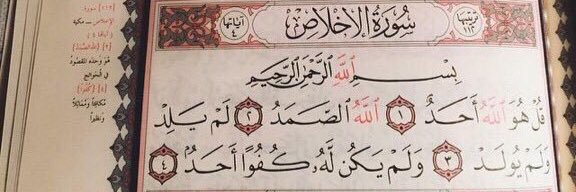 ترتيبها ١١٢
سُورَةُ الإِخْلَاصِ
آياتها ٤
بِسْمِ ٱللَّهِ ٱلرَّحْمَٰنِ ٱلرَّحِيمِ
قُلْ هُوَ ٱللَّهُ أَحَدٌ ١ ٱللَّهُ ٱلصَّمَدُ ٢ لَمْ يَلِدْ
وَلَمْ يُولَدْ ٣ وَلَمْ يَكُن لَّهُۥ كُفُوًا أَحَدٌۢ ٤
[١١٢] سورة
الإخلاص ـ مكية
[آياتها ٤]
[٢] ﴿اللَّهُ الصَّمَدُ﴾
هُوَ وَحْدَهُ المَقْصُودُ
في الحَوَائِجِ
[٤] ﴿كُفُوًا﴾
مُكَافِئًا وَمُمَاثِلًا
وَنَظِيرًا